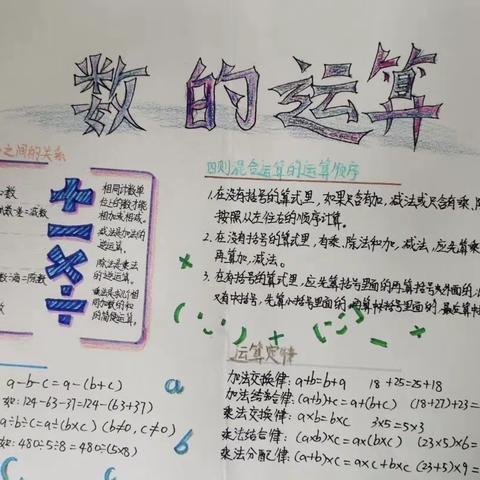 数的运算
之间的关系
数
数量=减数
数=商=除数
数
相同计数单
位上的数才能
相加或相减。
减法是加法的
逆运算。
除法是乘法
的逆运算。
乘法是求几个相
同加数的和
的简便运算。
+
-
×
÷
a-b-c=a-(b+c)
如:124-63-37=124-(63+37)
a÷b÷c=a÷(b×c) (b≠0,c≠0)
如:480÷5÷8=480÷(5×8)
a
b
c
四则混合运算的运算顺序
1.在没有括号的算式里,如果只含有加、减法或只含有乘、除
按照从左往右的顺序计算。
2.在没有括号的算式里,有乘、除法和加、减法,应先算乘
再算加、减法。
3.在有括号的算式里,应先算括号里面的再算括号外面的,
又有中括号,先算小括号里面的,再算中括号里面的,最后算中
运算定律
加法交换律:a+b=b+a 18+25=25+18
加法结合律:(a+b)+c=a+(b+c) (18+27)+23=
乘法交换律:a×b=b×c 3×5=5×3
乘法结合律:(a×b)×c=a×(b×c) (23×5)×6=
乘法分配律:(a+b)×c=a×c+b×c (23+5)×9=